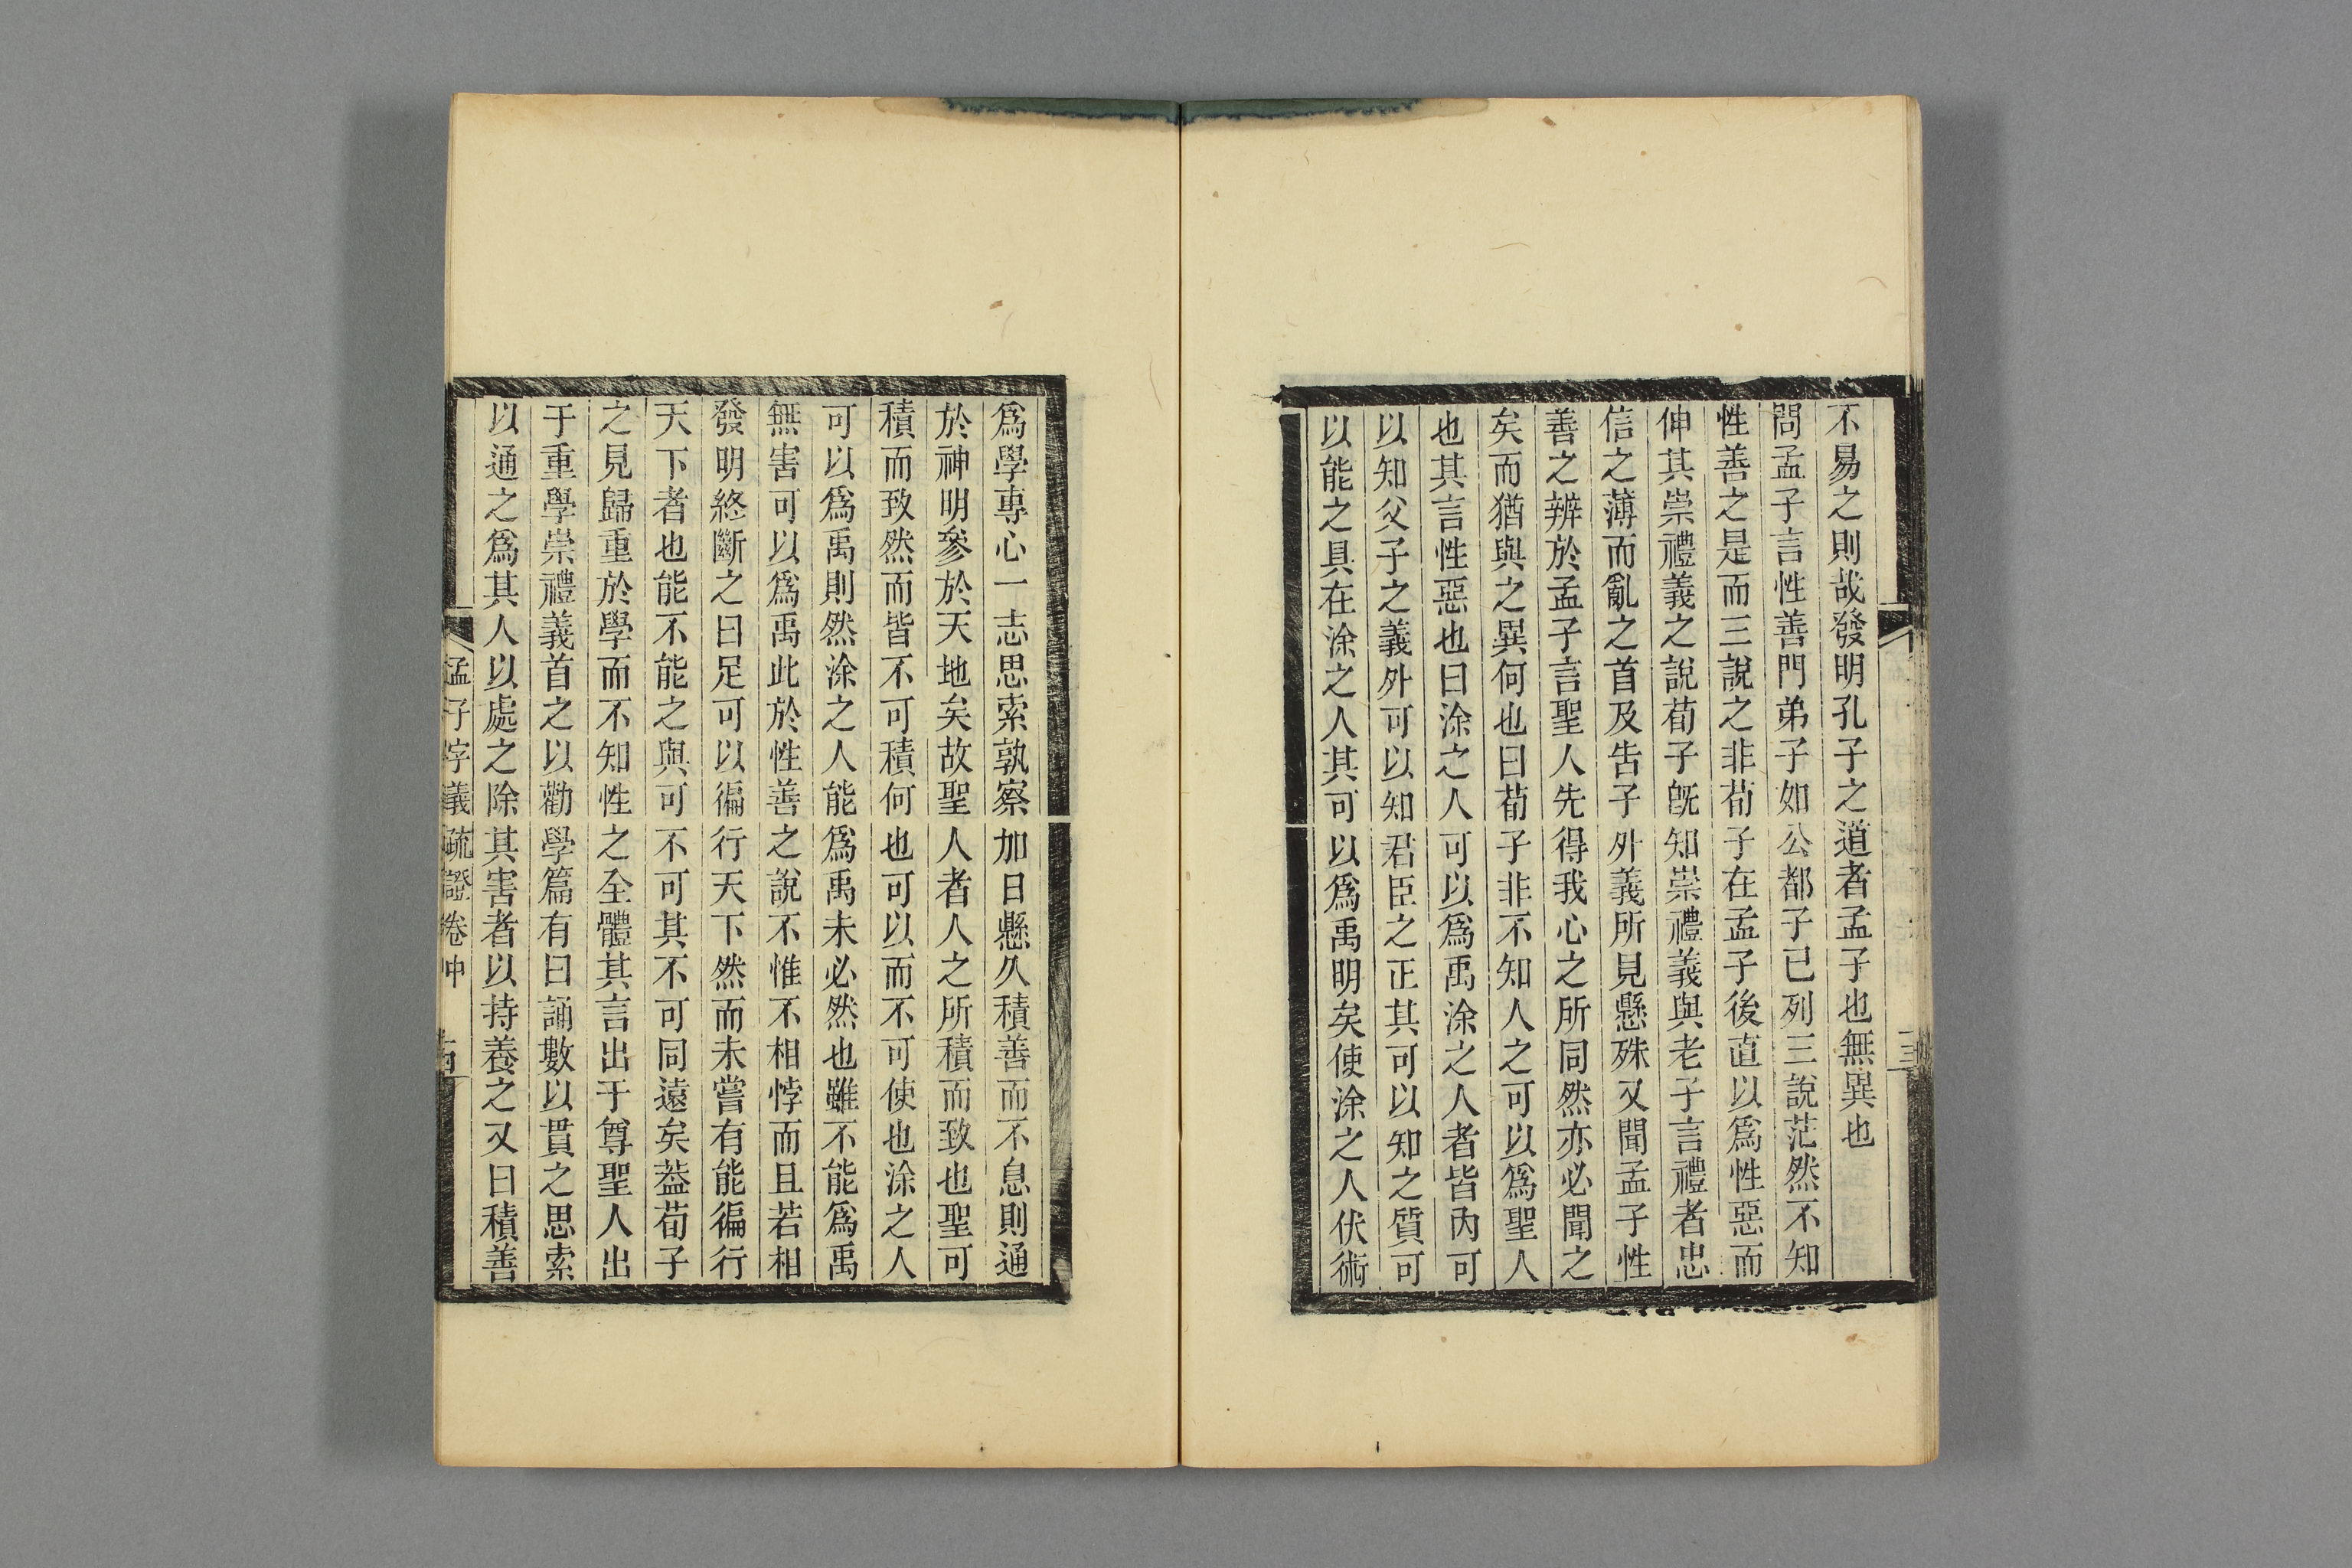 不易之則哉發明孔子之道者孟子也無異也
問孟子言性善門弟子如公都子已列三說茫然不知
性善之是而三說之非荀子在孟子後直以爲性惡而
伸其崇禮義之說荀子旣知崇禮義與老子言禮者忠
信之薄而亂之首及告子外義所見懸殊又聞孟子性
善之辨於孟子言聖人先得我心之所同然亦必聞之
矣而猶與之異何也曰荀子非不知人之可以爲聖人
也其言性惡也曰涂之人可以爲禹涂之人者皆內可
以知父子之義外可以知君臣之正其可以知之質可
以能之具在涂之人其可以爲禹明矣使涂之人伏術
爲學專心一志思索孰察加日懸久積善而不息則通
於神明參於天地矣故聖人者人之所積而致也聖可
積而致然而皆不可積何也可以而不可使也涂之人
可以爲禹則然涂之人能爲禹未必然也雖不能爲禹
無害可以爲禹此於性善之說不惟不相悖而且若相
發明終斷之曰足可以徧行天下然而未嘗有能徧行
天下者也能不能之與可不可其不可同遠矣葢荀子
之見歸重於學而不知性之全體其言出于尊聖人出
于重學崇禮義首之以勸學篇有曰誦數以貫之思索
以通之爲其人以處之除其害者以持養之又曰積善
孟子字義疏證卷中